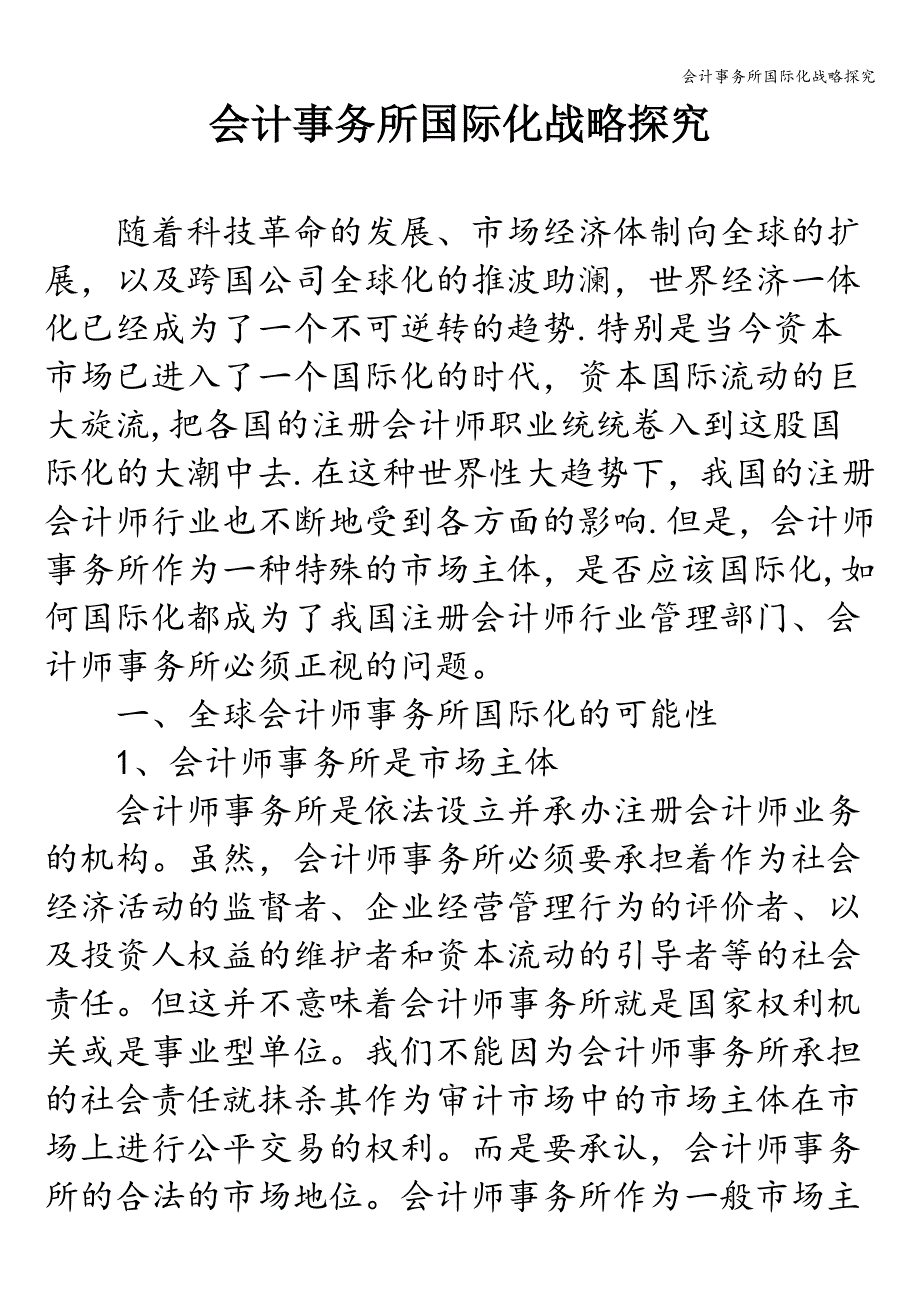 会计事务所国际化战略探究
会计事务所国际化战略探究
随着科技革命的发展、市场经济体制向全球的扩
展，以及跨国公司全球化的推波助澜，世界经济一体
化已经成为了一个不可逆转的趋势.特别是当今资本
市场已进入了一个国际化的时代，资本国际流动的巨
大旋流,把各国的注册会计师职业统统卷入到这股国
际化的大潮中去.在这种世界性大趋势下，我国的注册
会计师行业也不断地受到各方面的影响.但是，会计师
事务所作为一种特殊的市场主体，是否应该国际化,如
何国际化都成为了我国注册会计师行业管理部门、会
计师事务所必须正视的问题。
一、全球会计师事务所国际化的可能性
1、会计师事务所是市场主体
会计师事务所是依法设立并承办注册会计师业务
的机构。虽然，会计师事务所必须要承担着作为社会
经济活动的监督者、企业经营管理行为的评价者、以
及投资人权益的维护者和资本流动的引导者等的社会
责任。但这并不意味着会计师事务所就是国家权利机
关或是事业型单位。我们不能因为会计师事务所承担
的社会责任就抹杀其作为审计市场中的市场主体在市
场上进行公平交易的权利。而是要承认，会计师事务
所的合法的市场地位。会计师事务所作为一般市场主